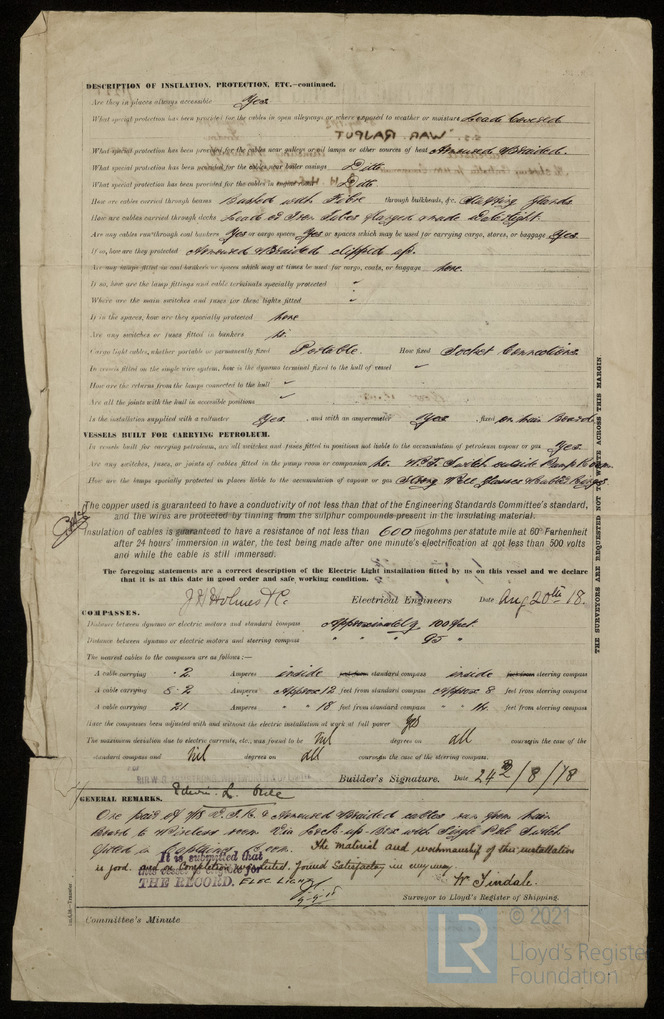 DESCRIPTION OF INSULATION, PROTECTION, ETC.—continued.
Are they in places always accessible Yes
What special protection has been provided for the cables in open alleyways or where exposed to weather or moisture Lead Covered
What special protection has been provided for the cables near galleys or oil lamps or other sources of heat Armoured & Braided.
What special protection has been provided for the cables near boiler casings Ditto
What special protection has been provided for the cables in engine room Ditto
How are cables carried through beams Bushed with Fibre through bulkheads, &c. Stuffing Glands
How are cables carried through decks Leads or Iron Tubes flanged & made Watertight.
Are any cables run through coal bunkers Yes or cargo spaces Yes or spaces which may be used for carrying cargo, stores, or baggage Yes
If so, how are they protected Armoured & Braided clipped up.
Are any lamps fitted in coal bunkers or spaces which may at times be used for cargo, coals, or baggage none.
If so, how are the lamp fittings and cable terminals specially protected
Where are the main switches and fuses for these lights fitted
If in the spaces, how are they specially protected none
Are any switches or fuses fitted in bunkers no.
Cargo light cables, whether portable or permanently fixed Portable. How fixed Socket Connections.
In vessels fitted on the single wire system, how is the dynamo terminal fixed to the hull of vessel
How are the returns from the lamps connected to the hull
Are all the joints with the hull in accessible positions
Is the installation supplied with a voltmeter Yes, and with an amperemeter Yes, fixed on Main Board.
VESSELS BUILT FOR CARRYING PETROLEUM.
In vessels built for carrying petroleum, are all switches and fuses fitted in positions not liable to the accumulation of petroleum vapour or gas Yes.
Are any switches, fuses, or joints of cables fitted in the pump room or companion No. W.T. Switch outside Pump Room.
How are the lamps specially protected in places liable to the accumulation of vapour or gas Strong Well Glasses & Rubber Rings.
The copper used is guaranteed to have a conductivity of not less than that of the Engineering Standards Committee's standard,
and the wires are protected by tinning from the sulphur compounds present in the insulating material.
Insulation of cables is guaranteed to have a resistance of not less than 600 megohms per statute mile at 60° Farhenheit
after 24 hours' immersion in water, the test being made after one minute's electrification at not less than 500 volts
and while the cable is still immersed.
The foregoing statements are a correct description of the Electric Light installation fitted by us on this vessel and we declare
that it is at this date in good order and safe working condition.
J H Holmes & Co. Electrical Engineers Date Aug 20th 18.
COMPASSES.
Distance between dynamo or electric motors and standard compass Approximately 100 feet.
Distance between dynamo or electric motors and steering compass " 95 "
The nearest cables to the compasses are as follows:—
A cable carrying .2 Amperes inside feet from standard compass inside feet from steering compass
A cable carrying 5.2 Amperes Approx 12 feet from standard compass Approx 8 feet from steering compass
A cable carrying 21 Amperes " 18 feet from standard compass " 14 feet from steering compass
Have the compasses been adjusted with and without the electric installation at work at full power Yes
The maximum deviation due to electric currents, etc., was found to be Nil degrees on all courses in the case of the
standard compass and Nil degrees on all courses in the case of the steering compass.
Builder's Signature. Date 24th/8/18
GENERAL REMARKS.
One pair of 7/18 V.I.R. & Armoured & Braided cables run from Main
Board to Wireless room via Lock-up-Box with Single Pole Switch
fitted in Captains Room. The material and workmanship of this installation
is good, and on completion was tested. Found Satisfactory in every way.
It is submitted that
this vessel is eligible for
THE RECORD. ELEC LIGHT
W Tindale.
Surveyor to Lloyd's Register of Shipping.
Committee's Minute
THE SURVEYORS ARE REQUESTED NOT TO WRITE ACROSS THIS MARGIN
© 2021
LR
Lloyd's Register
Foundation